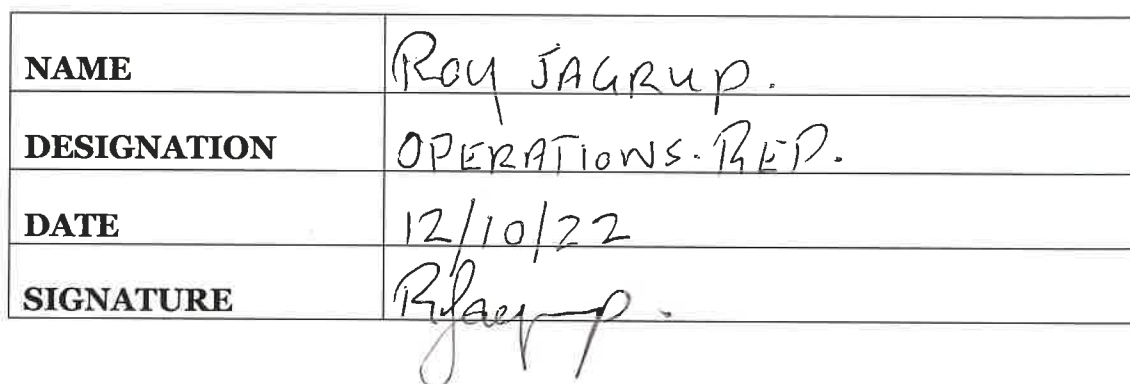 NAME Roy JAGRUP.
DESIGNATION OPERATIONS. REP.
DATE 12/10/22
SIGNATURE RJagrup.